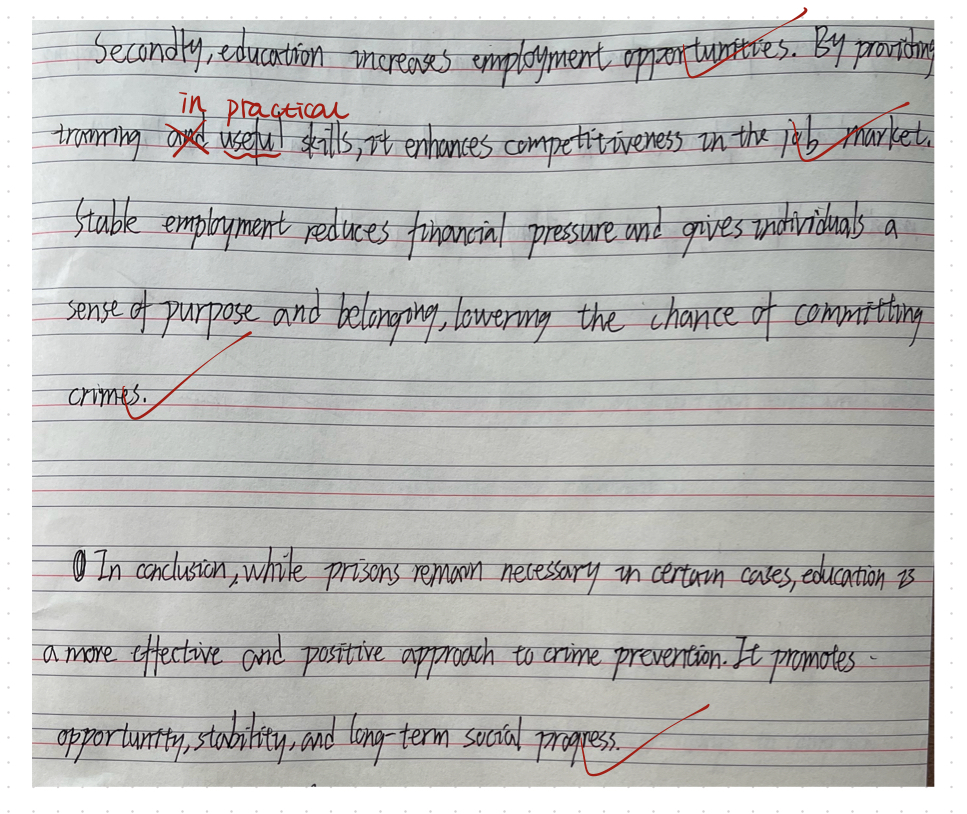 Secondly, education increases employment opportunities. By providing
in practical
training and useful skills, it enhances competitiveness in the job market.
Stable employment reduces financial pressure and gives individuals a
sense of purpose and belonging, lowering the chance of committing
crimes.
In conclusion, while prisons remain necessary in certain cases, education is
a more effective and positive approach to crime prevention. It promotes
opportunity, stability, and long-term social progress.